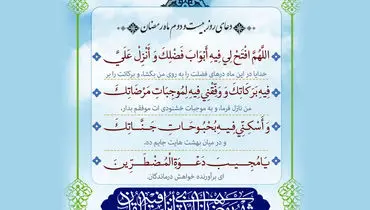 دعای روز بیست و دوم ماه رمضان
اللَّهُمَّ افْتَحْ لِي فِيهِ أَبْوَابَ فَضْلِكَ وَ أَنْزِلْ عَلَيَّ
خدایا در این ماه درهای فضلت را به روی من بگشا، و برکاتت را بر
فِيهِ بَرَكَاتِكَ وَ وَفِّقْنِي فِيهِ لِمُوجِبَاتِ مَرْضَاتِكَ
من نازل فرما، و به موجبات خشنودی ات موفقم بدار،
وَ أَسْكِنِّي فِيهِ بُحْبُوحَاتِ جَنَّاتِكَ
و در میان بهشت هایت جایم ده،
يَا مُجِيبَ دَعْوَةِ الْمُضْطَرِّينَ
ای برآورنده خواهش درماندگان.